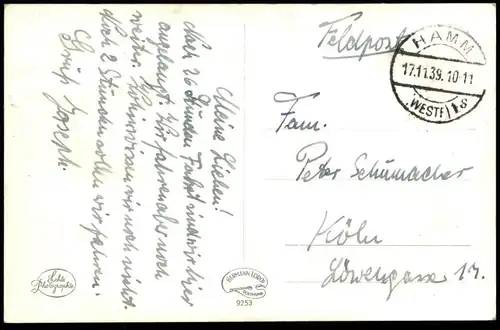 Meine Lieben!
Nach 26 Stunden Fahrt sind wir hier
angelangt. Wir fahren aber noch
weiter. Wohin wissen wir noch nicht.
Noch 2 Stunden sollen wir fahren.
Gruß Joseph.
Feldpost
HAMM
17.11.39.10-11
(WESTF)1s
Fam.
Peter Schumacher
Köln
Löwengasse 17.
Echte
Photographie
HERMANN LORCH
DORTMUND
9253